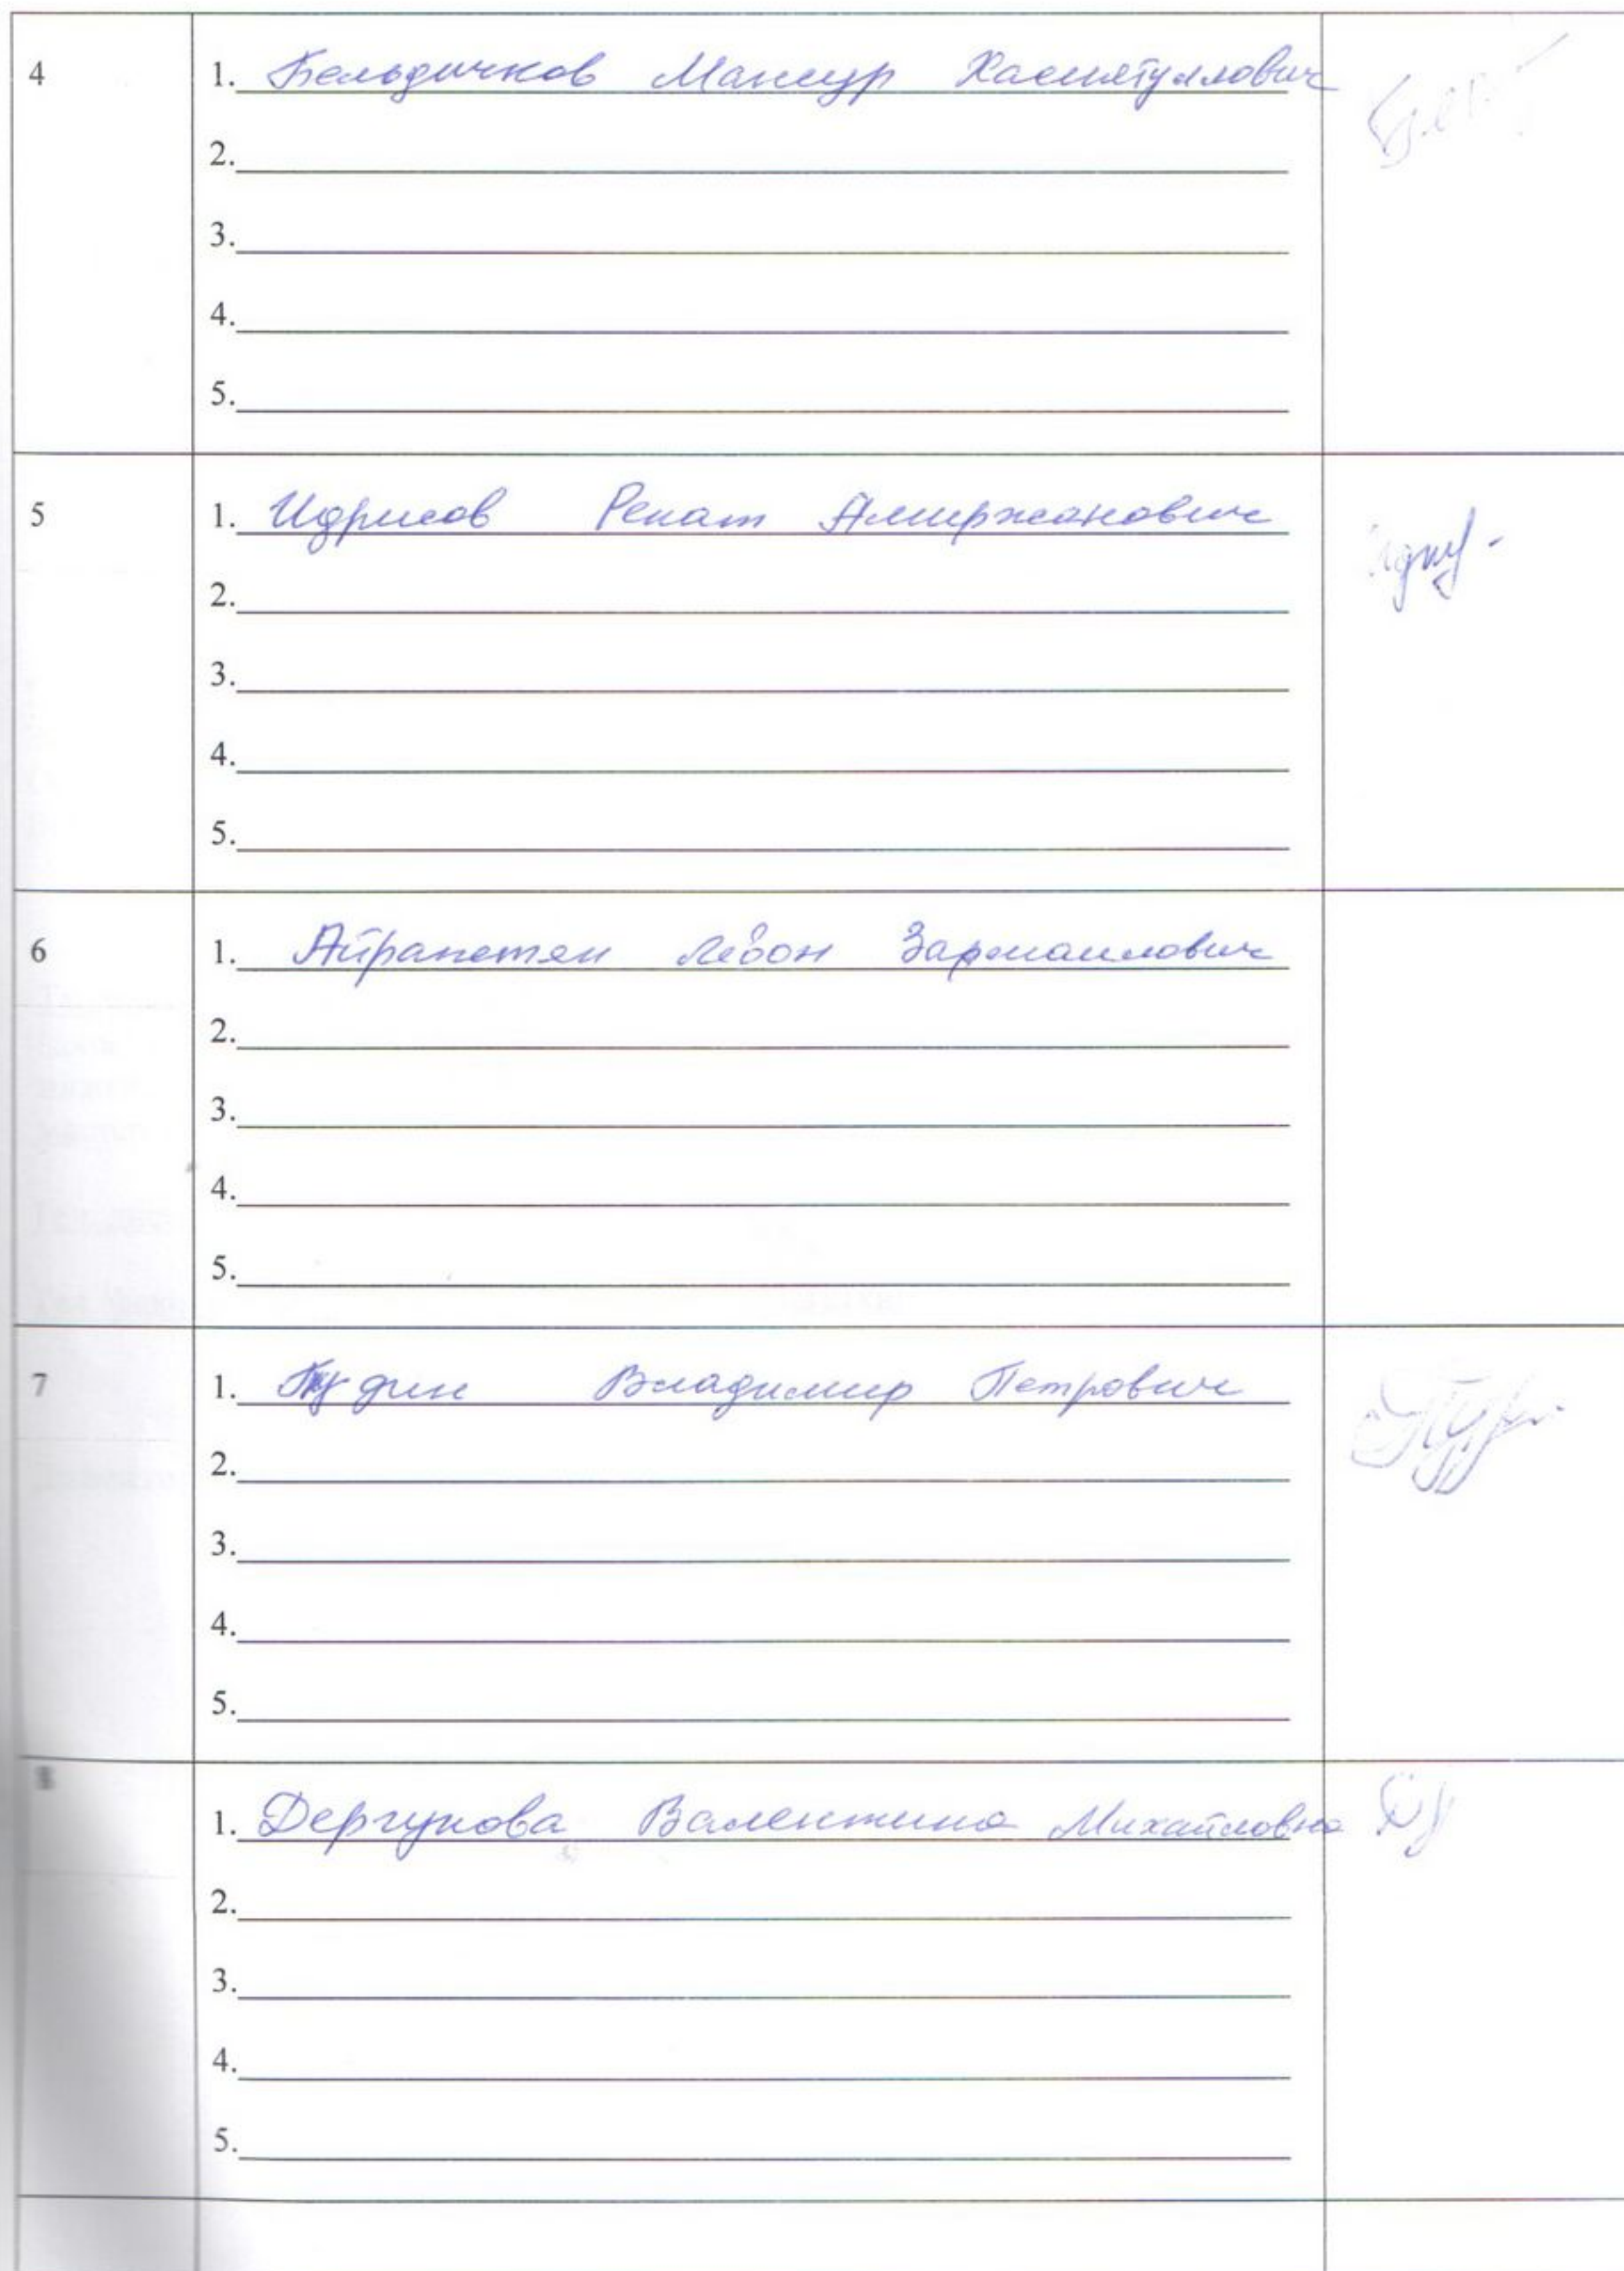 4
1. Бельдичков Мансур Хасиятуллович
2.
3.
4.
5.
5
1. Идрисов Ренат Амиржанович
2.
3.
4.
5.
6
1. Айрапетян Левон Зармаилович
2.
3.
4.
5.
7
1. Владимир Петрович
2.
3.
4.
5.
8
1. Дергунова Валентина Михайловна
2.
3.
4.
5.